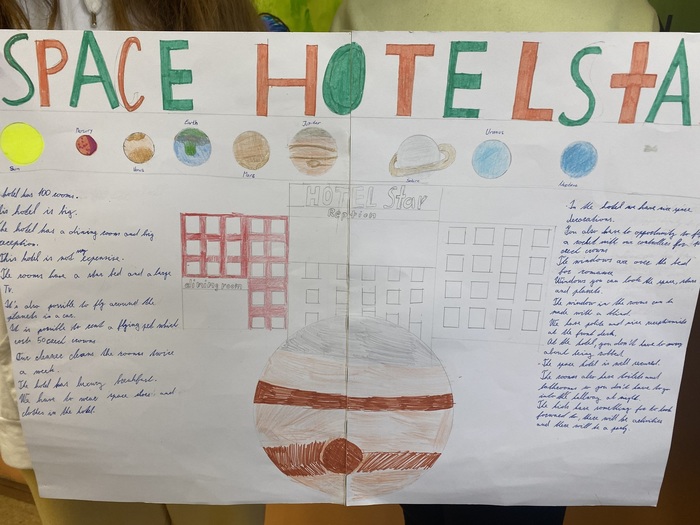 SPACE HOTEL STA
Sun
Mercury
Venus
Earth
Mars
Jupiter
Saturn
Uranus
Neptune
HOTEL Star
Reception
dining room
hotel has 400 rooms.
is hotel is big.
he hotel has a dining room and big
reception.
This hotel is not very expensive.
The rooms have a star bed and a large
TV.
It's also possible to fly around the
planets in a car.
It is possible to rent a flying bed which
costs 50 czech crowns
One cleaner cleans the rooms twice
a week.
The hotel has breakfast.
We have to wear space shoes and
clothes in the hotel.
In the hotel we have nice space
decorations.
You also have to opportunity to fl
a rocket with our
czech crowns
The windows are over the bed
for romance
Windows you can look the space, stars
and planets
The window in the room can be
made with a blind.
We have polite and nice receptionists
at the front desk.
At the hotel, you don't have to worry
about being robbed.
The space hotel is well
The rooms also have toilets and
bathrooms so you don't have to go
into the hallway at night.
The kids have something for to look
forward to, there will be activities
and there will be a party